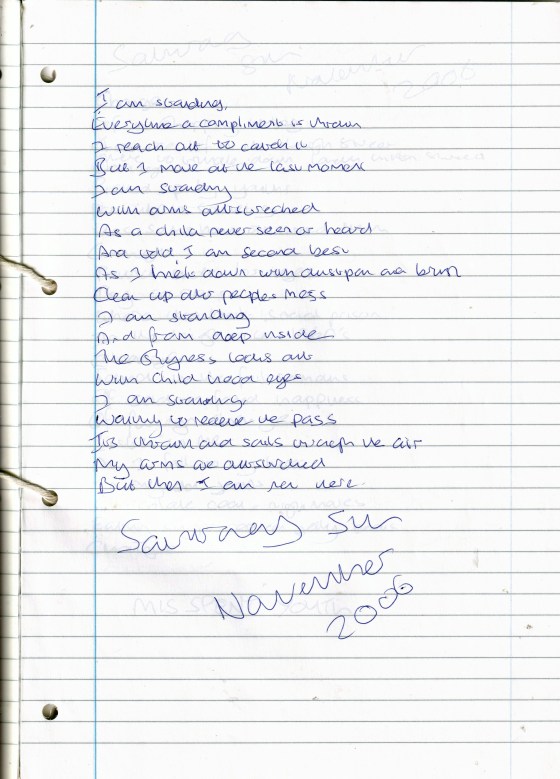 I am standing,
Everytime a compliment is thrown
I reach out to catch it
But I move at the last moment
I am standing
with arms outstretched
As a child never seen or heard
And told, I am second best
As I knelt down with dustpan and brush
Clean up other peoples mess
I am standing
And from deep inside
The looks out
With child hood eyes
I am standing,
Waiting to receive the pass
Its thrown and sails through the air
My arms are outstretched
But then I am not here.
Saturday
November
2006
MIS